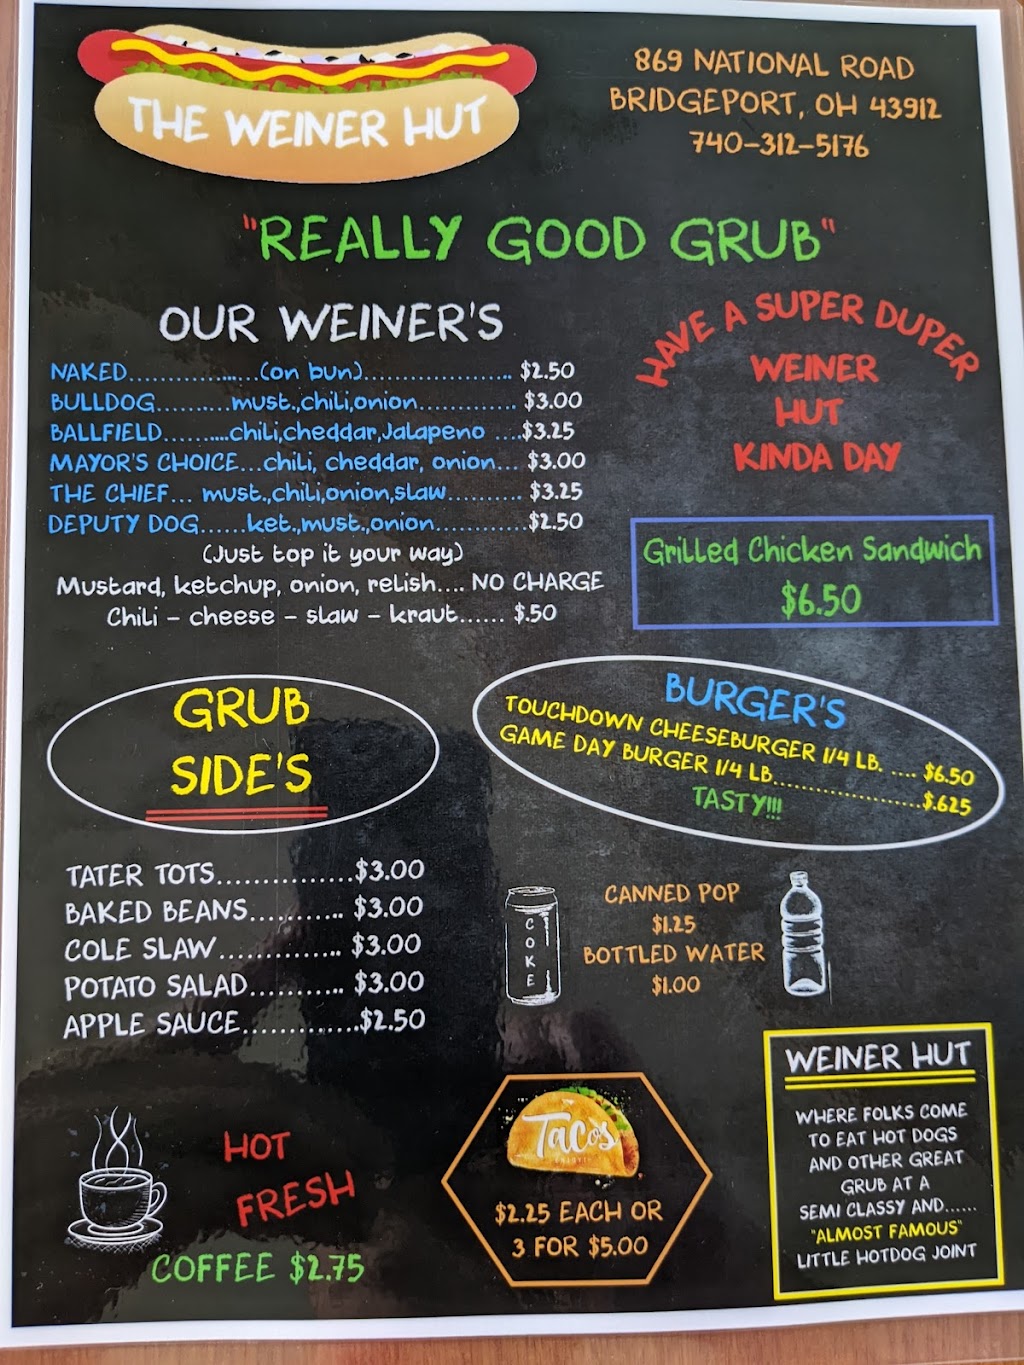 THE WEINER HUT
869 NATIONAL ROAD
BRIDGEPORT, OH 43912
740-312-5176
"REALLY GOOD GRUB"
OUR WEINER'S
NAKED...................(on bun)...................... $2.50
BULLDOG...........must.,chili,onion.............. $3.00
BALLFIELD..........chili,cheddar,Jalapeno ....$3.25
MAYOR'S CHOICE...chili, cheddar, onion... $3.00
THE CHIEF... must.,chili,onion,slaw.......... $3.25
DEPUTY DOG......ket.,must.,onion.............$2.50
(Just top it your way)
Mustard, ketchup, onion, relish.... NO CHARGE
Chili - cheese - slaw - kraut...... $.50
HAVE A SUPER DUPER
WEINER
HUT
KINDA DAY
Grilled Chicken Sandwich
$6.50
GRUB
SIDE'S
BURGER'S
TOUCHDOWN CHEESEBURGER 1/4 LB. .... $6.50
GAME DAY BURGER 1/4 LB......................$.625
TASTY!!!
TATER TOTS...............$3.00
BAKED BEANS........... $3.00
COLE SLAW.............. $3.00
POTATO SALAD........... $3.00
APPLE SAUCE.............$2.50
COKE
CANNED POP
$1.25
BOTTLED WATER
$1.00
HOT
FRESH
COFFEE $2.75
Tacos
$2.25 EACH OR
3 FOR $5.00
WEINER HUT
WHERE FOLKS COME
TO EAT HOT DOGS
AND OTHER GREAT
GRUB AT A
SEMI CLASSY AND......
"ALMOST FAMOUS"
LITTLE HOTDOG JOINT